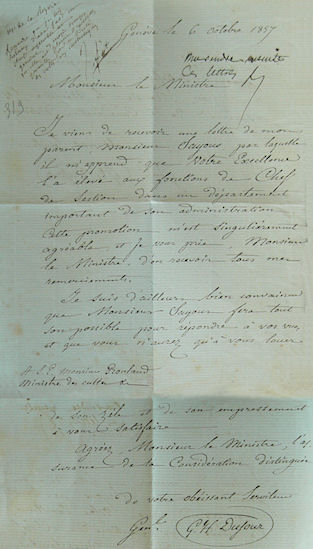 Genève le 6 octobre 1857
Monsieur le Ministre
313
Je viens de recevoir une lettre de mon
parent, Monsieur Sayous, par laquelle
il m'apprend que Votre Excellence
l'a élevé aux fonctions de Chef
de Section dans un département
important de son administration
Cette promotion m'est singulièrement
agréable et je vous prie, Monsieur
le Ministre d'en recevoir tous mes
remerciements.
Je suis d'ailleurs bien convaincu
que Monsieur Sayous fera tout
son possible pour répondre à vos vues,
et que vous n'aurez qu'à vous louer
A S. E. Monsieur Rouland
Ministre des cultes &c
de son zèle et de son empressement
à vous satisfaire
Agréez, Monsieur le Ministre, l'as
surance de la Considération distinguée
de votre obéissant Serviteur
Genl. G H Dufour